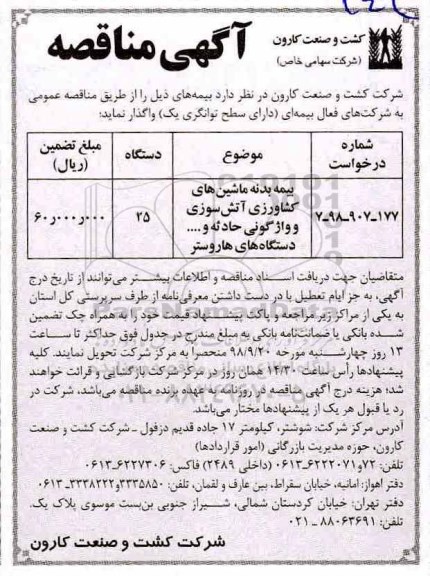 کشت و صنعت کارون
(شرکت سهامی خاص)
آگهی مناقصه
شرکت کشت و صنعت کارون در نظر دارد بیمه‌های ذیل را از طریق مناقصه عمومی
به شرکت‌های فعال بیمه‌ای (دارای سطح توانگری یک) واگذار نماید:
شماره درخواست موضوع دستگاه مبلغ تضمین (ریال)
۱۷۷-۹۰۷-۹۸-۷
بیمه بدنه ماشین‌های
کشاورزی آتش‌سوزی
و واژگونی حادثه و ....
دستگاه‌های هاروستر
۲۵
۶۰ر۰۰۰ر۰۰۰
متقاضیان جهت دریافت اسناد مناقصه و اطلاعات بیشتر می‌توانند از تاریخ درج
آگهی، به جز ایام تعطیل با در دست داشتن معرفی‌نامه از طرف سرپرستی کل استان
به یکی از مراکز زیر مراجعه و پاکت پیشنهاد قیمت خود را به همراه چک تضمین
شده بانکی یا ضمانتنامه بانکی به مبلغ مندرج در جدول فوق حداکثر تا ساعت
۱۳ روز چهارشنبه مورخه ۹۸/۹/۲۰ منحصراً به مرکز شرکت تحویل نمایند. کلیه
پیشنهادها رأس ساعت ۱۴/۳۰ همان روز در مرکز شرکت بازگشایی و قرائت خواهند
شد؛ هزینه درج آگهی مناقصه در روزنامه به عهده برنده مناقصه می‌باشد، شرکت در
رد یا قبول هر یک از پیشنهادها مختار می‌باشد.
آدرس مرکز شرکت: شوشتر، کیلومتر ۱۷ جاده قدیم دزفول ـ شرکت کشت و صنعت
کارون، حوزه مدیریت بازرگانی (امور قراردادها)
تلفن: ۷۲و۶۲۲۲۰۷۱-۰۶۱۳ (داخلی ۲۴۸۹) فاکس: ۶۲۲۷۳۰۶-۰۶۱۳
دفتر اهواز: امانیه، خیابان سقراط، بین عارف و لقمان، تلفن: ۳۳۳۵۸۵۰و۳۳۳۸۲۲۲-۰۶۱۳
دفتر تهران: خیابان کردستان شمالی، شیراز جنوبی بن‌بست موسوی پلاک یک.
تلفن: ۸۸۰۶۳۶۹۱ - ۰۲۱
شرکت کشت و صنعت کارون